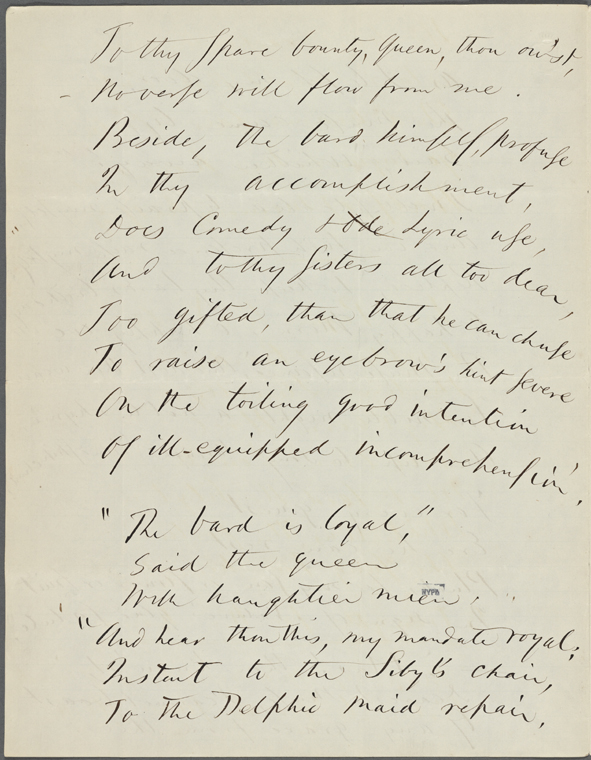 To thy spare bounty, Queen, thou ow'st,
No verse will flow from me.
Beside, the bard himself, profuse
In thy accomplishment,
Does Comedy & Ode Lyric use,
And to thy Sisters all too dear,
Too gifted, than that he can chuse
To raise an eyebrow's hint severe
On the toiling good intention
Of ill-equipped incomprehension.
"The bard is loyal,"
Said the queen
With haughtier mien,
NYPB
"And hear thou this, my mandate royal;
Instant to the Sibyl's chair,
To the Delphic maid repair,